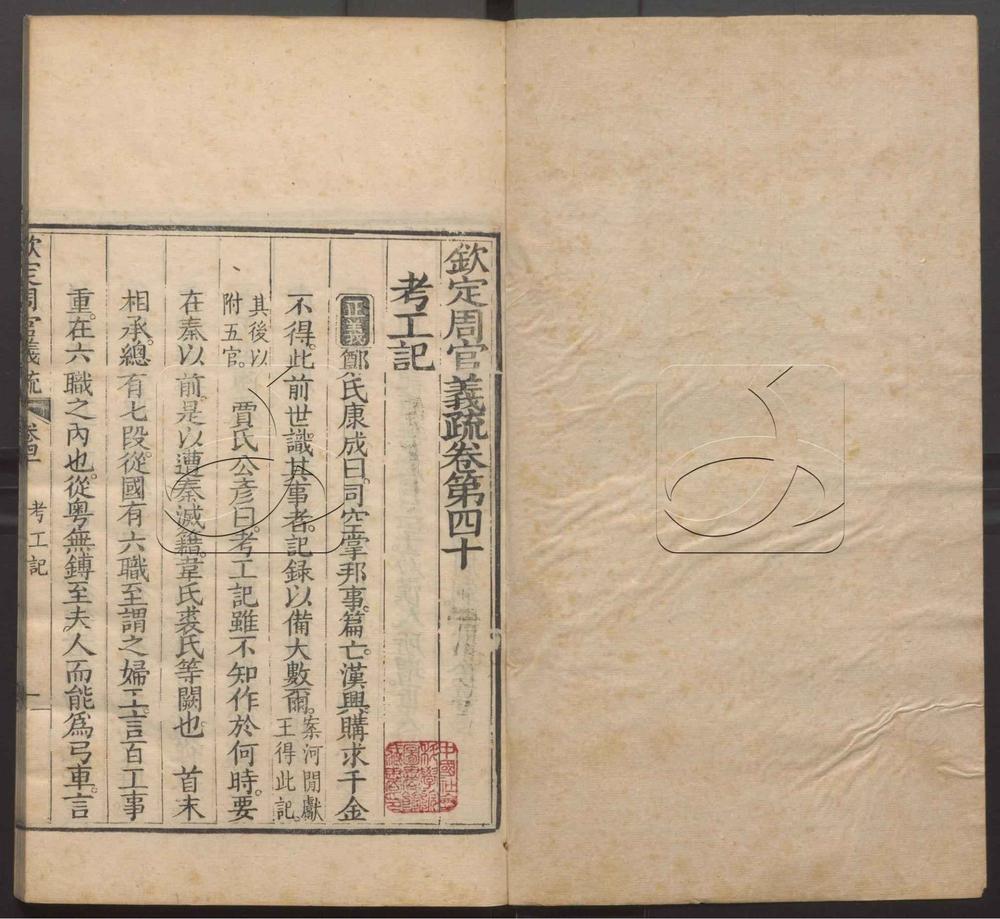 欽定周官義疏卷第四十
考工記
正義鄭氏康成曰司空掌邦事篇亡漢興購求千金
不得此前世識其事者記錄以備大數爾案河閒獻王得此記
其後以附五官 賈氏公彥曰考工記雖不知作於何時要
在秦以前是以遭秦滅籍韋氏裘氏等闕也 首末
相承總有七段從國有六職至謂之婦工言百工事
重在六職之內也從粵無鎛至夫人而能爲弓車言
欽定周官義疏 卷四十 考工記 一